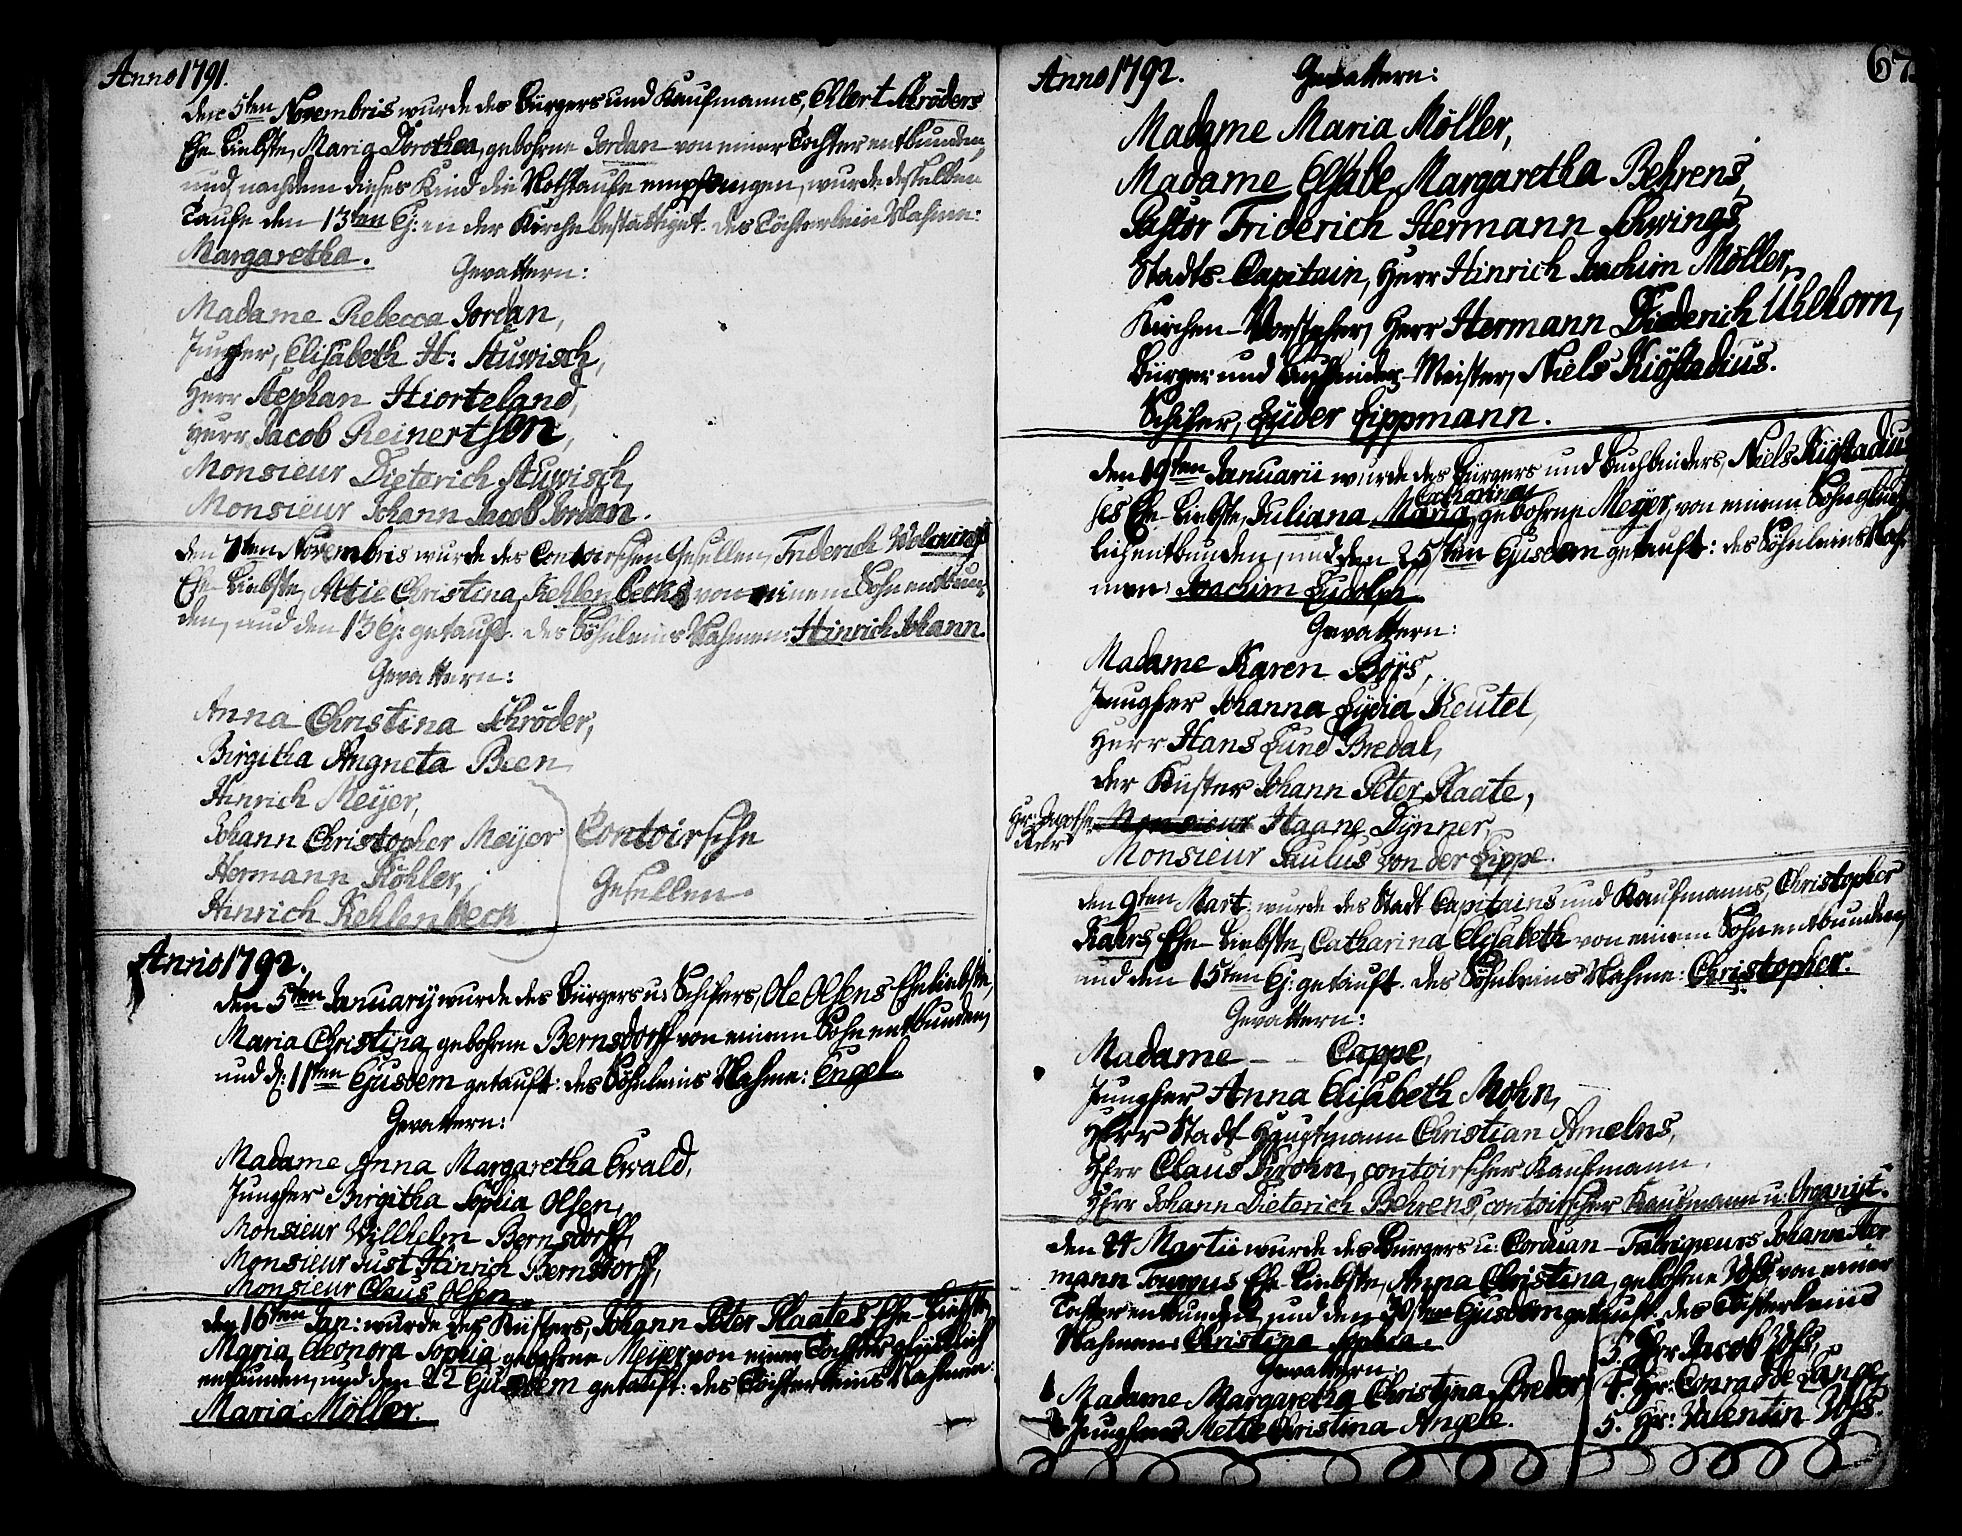 Anno 1791.
Den 5ten Novembris wurde des Bürgers und Kaufmanns, Ehlert Schröders
Ehe-Liebste, Maria Dorothea, gebohrne Jordan von einer Tochter entbunden,
und nachdem dieses Kind die Nothtaufe empfangen, wurde desselben
Taufe den 13ten Ej: in der Kirche bestättiget. des Töchterlein Nahme:
Margaretha.
Gevattern:
Madame Rebecca Jordan,
Jungfer, Elisabeth H: Stuwisch,
Herr Stephan Hiorteland,
Herr Jacob Reinertson,
Monsieur Dieterich Stuwisch,
Monsieur Johann Jacob Jordan.
Den 7ten Novembris wurde des Contoirschen Gesellen, Friderich
Ehe-Liebste, Attie Christina Kehlenbecks von einem Sohn entbun-
den, und den 13 Ej: getauft. des Söhnleins Nahmen: Hinrich Johann.
Gevattern:
Anna Christina Schröder,
Birgitha Angneta Been
Hinrich Meijer,
Johann Christopher Meijer
Hermann Köhler,
Hinrich Kehlenbeck
Contoirsche
Gesellen.
Anno 1792.
Den 5ten Januarij wurde des Bürgers u: Schifers, Ole Olsens Eheliebste,
Maria Christina gebohrne Bernsdorff von einem Sohn entbunden,
und d: 11ten Ejusdem getauft: des Söhnleins Nahme: Engel.
Gevattern:
Madame Anna Margaretha Ewald,
Jungfer Birgitha Sophia Olsen,
Monsieur Willhelm Bernsdorff,
Monsieur Just Hinrich Bernsdorff,
Monsieur Claus Olsen.
Den 16ten Jan: wurde des Küsters, Johann Peter Plaates Ehe-Liebste,
Maria Eleonora Sophia gebohrne Meijer von einer Tochter glücklich
entbunden, und den 22 Ejusdem getauft: des Töchterleins Nahmen:
Maria Möller.
67.
Anno 1792.
Gevattern:
Madame Maria Möller,
Madame Elsabe Margaretha Behrens,
Pastor Friderich Hermann Schwings,
Stadts-Capitain, Herr Hinrich Joachim Möller,
Kirchen-Vorsteher, Herr Hermann Diederich Uhlhorn,
Bürger und Buchbinder-Meister, Niels Kiöstadius.
Schifer, Lüder Lippmann.
Den 19ten Januarii wurde des Bürgers und Buchbinders, Niels Kiöstadiu
ses Ehe-Liebste, Juliana Maria Catharina, gebohrne Meyer, von einem Sohn glück-
lich entbunden, und den 25sten Ejusdem getauft: des Söhnleins Nah-
men: Joachim Ludolph.
Gevattern:
Madame Karen Böys,
Jungfer Johanna Lydia Reutel,
Herr Hans Lund Bredal,
der Küster Johann Peter Plaate,
Hr: Apothe-
ker
Monsieur Haane Dynner,
Monsieur Paulus von der Lippe.
Den 9ten Mart: wurde des Stadt Capitains und Kaufmanns, Christopher
Kahrs Ehe-Liebste, Catharina Elisabeth von einem Sohn entbunden,
und den 15ten Ej: getauft. des Söhnleins Nahme: Christopher.
Gevattern:
Madame – Cappe,
Jungfer Anna Elisabeth Mohn,
Herr Stadt-Hauptmann Christian Amelns,
Herr Claus Krohn, contoirscher Kaufmann,
Herr Johann Dieterich Behrens, contoirscher Kaufmann u: Organist.
Den 24 Martii wurde des Bürgers u: Corduan-Fabriqeurs Johann Her
mann Ehe-Liebste, Anna Christina, gebohrne Vohs, von einer
Tochter entbunden, und den 30sten Ejusdem getauft. des Töchterleins
Nahmen: Christina Sophia.
Gevattern:
1 Madame Margaretha Christina Breder,
2 Jungfer Mette Christina Angele.
3. Herr Jacob Vohs,
4. Hr: Conrad de Lange,
5. Hr: Valentin Vohs.